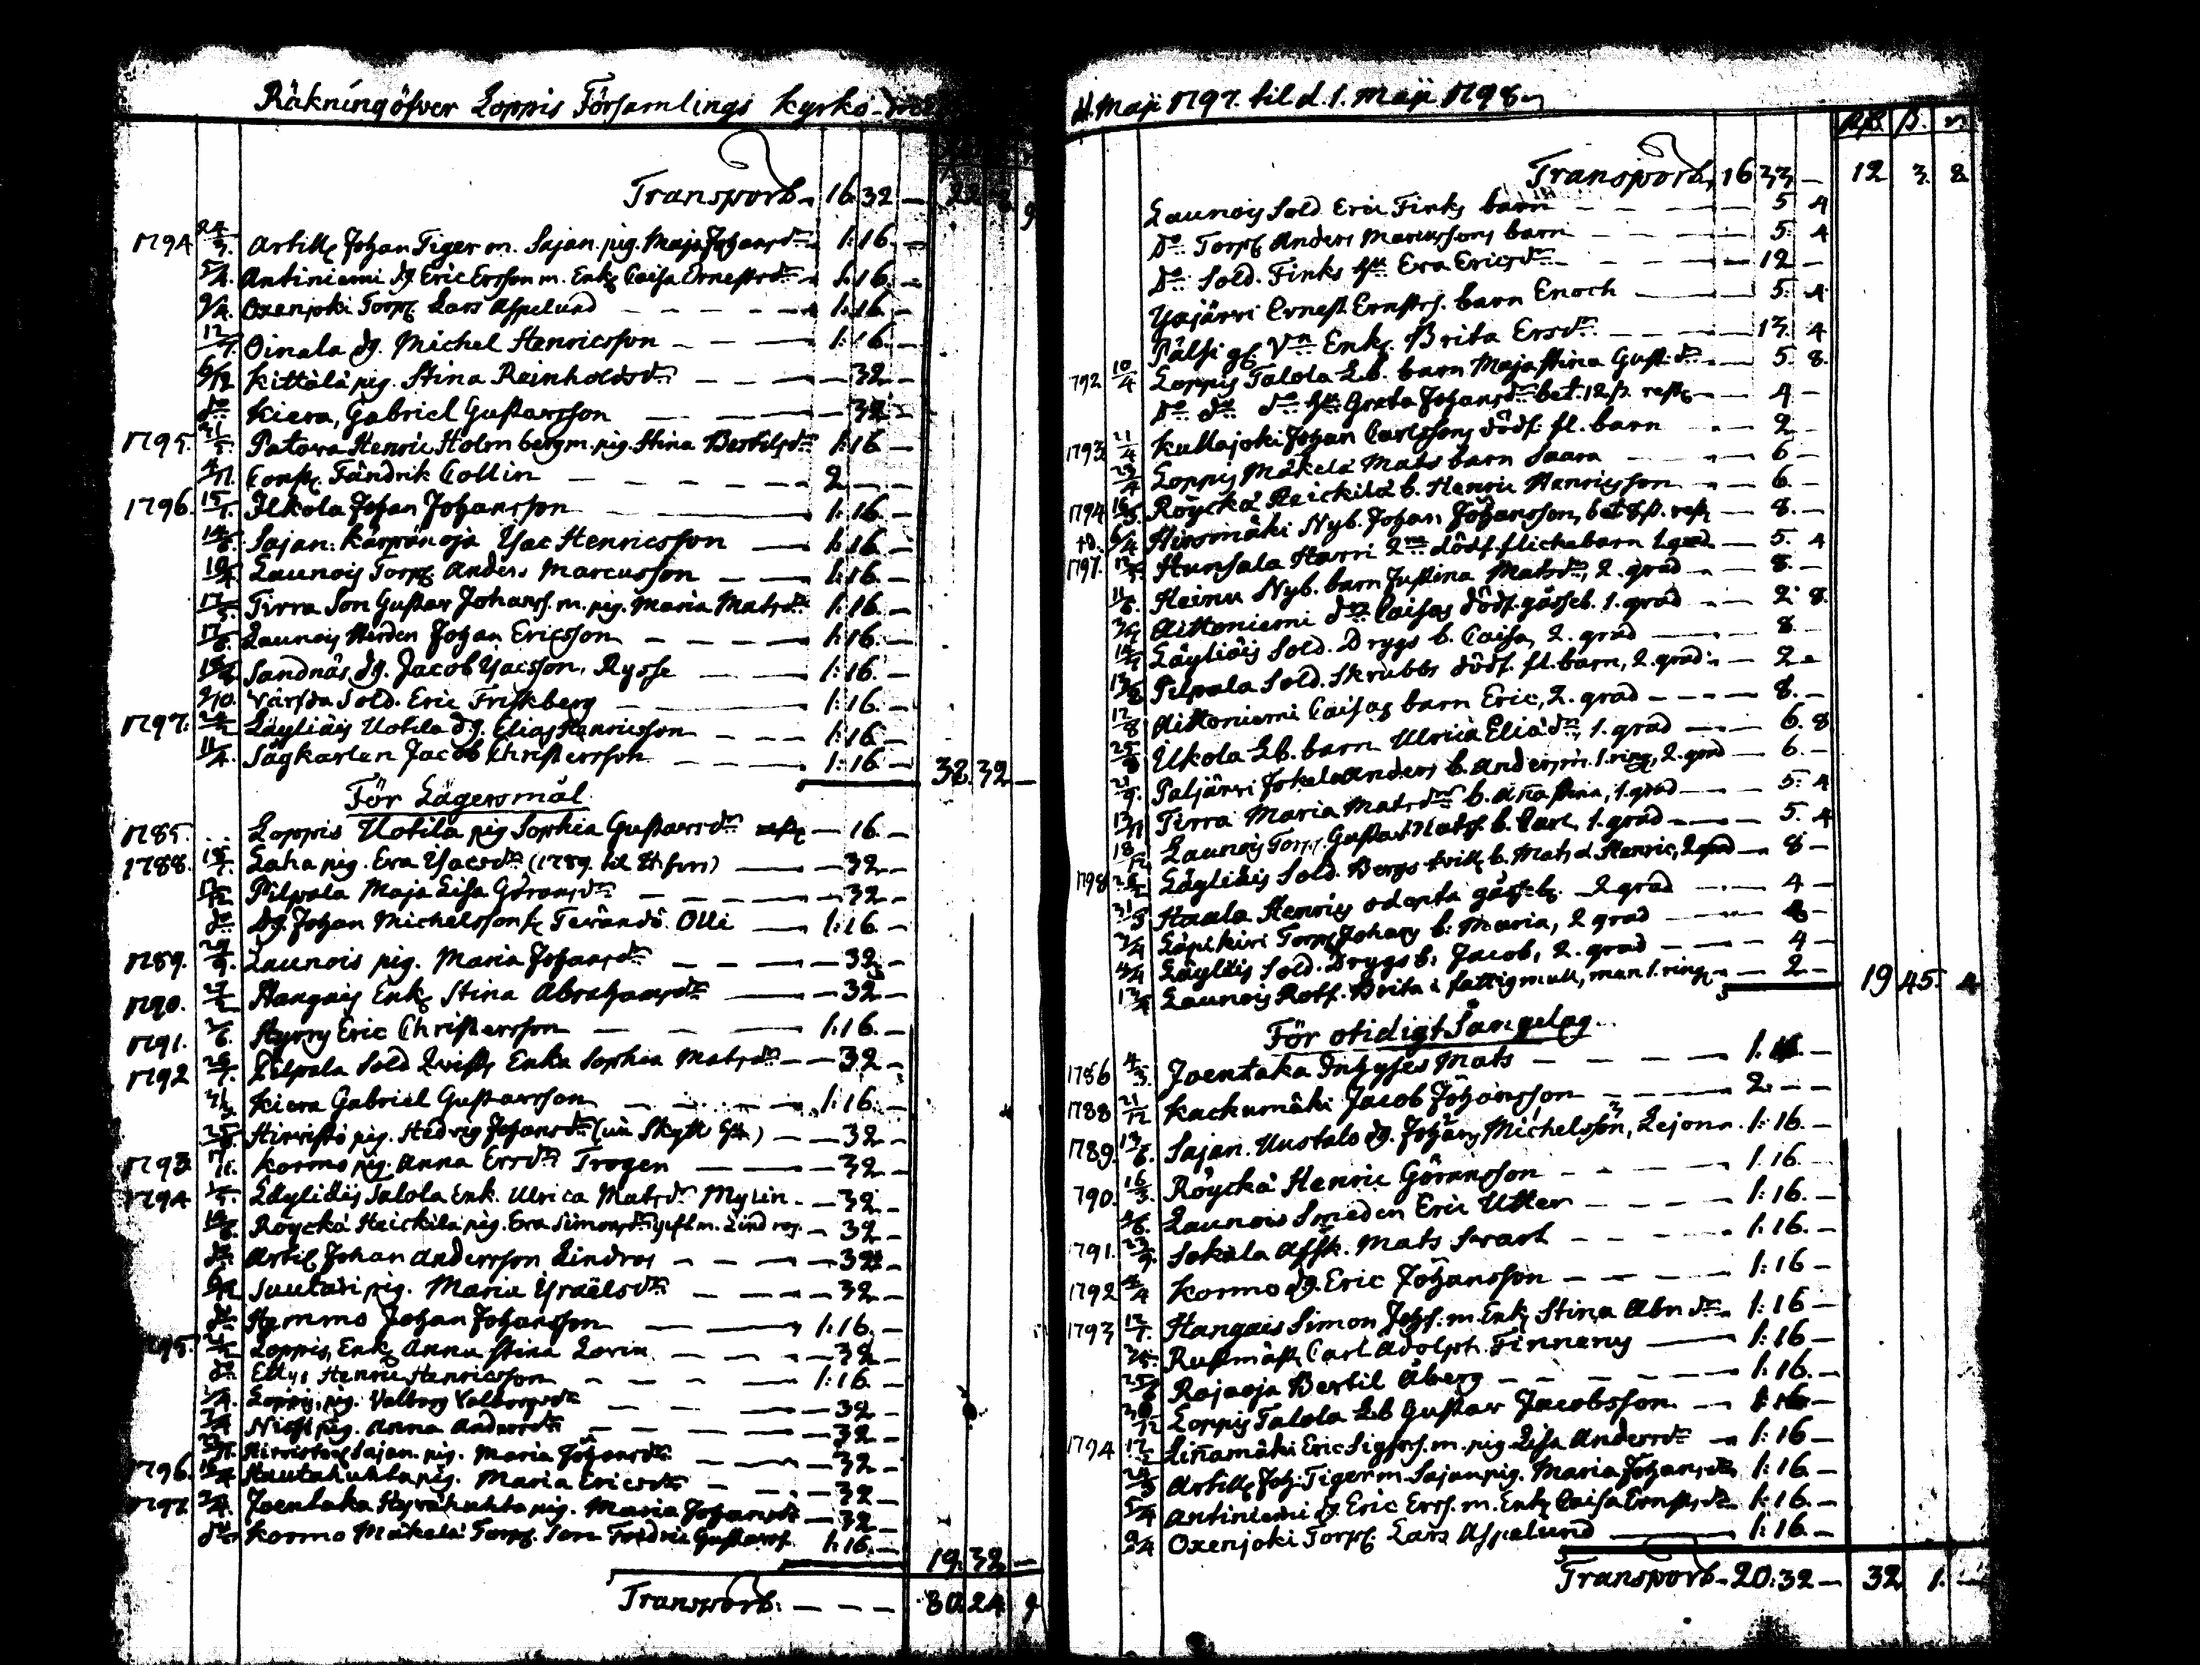 Räkning öfver Loppis Församlings Kyrko-
Transport. 16. 32 — 22 8 9
1794 24/3. Artill. Johan Tiger m. Sajan. pig. Maja Johansdr 1:16. —
5/4. Antiniemi dg. Eric Ersson m. Enk. Caisa Ernestsdr — 1:16. —
9/4. Oxenjoki Torp. Lars Aspelund — — — 1:16. —
12/7. Oinala dg. Michel Henricsson — — 1:16. —
6/12 Kittälä pig. Stina Reinholdsdr — — — 32 —
do Kiera, Gabriel Gustavsson — — 32 —
1795. Patova Henric Holmberg m. pig. Stina Bertilsdr 1:16 —
4/11. Fändrik Collin — — — 2 — —
1796. 15/1. Ilkola Johan Johansson — — 1:16 —
14/8. Sajan: Karpänoja Ysac Henricsson — 1:16 —
Launois Torp. Anders Marcusson — — 1:16. —
Tirra Son Gustav Johanss. m. pig. Maria Matsdr 1:16. —
17/8. Launois Herden Johan Ericsson — — 1:16 —
Sandnäs dg. Jacob Ysacsson, Rysse — — 1:16. —
9/10. Sold. Eric Friskberg — — 1:16. —
1797. 24/2 Läyliäis Uotila dg. Elias Henricsson — — — 1:16 —
11/4. Sågkarlen Jacob Christersson — — 1:16 — 38 32 —
För Lägersmål
1785. Loppis Uotila pig Sophia Gustavsdr rest. — 16. —
1788. Laha pig. Eva Ysacsdr (1789. til H:fors) — 32 —
Pilpala Maja Lisa Göransdr — — — 32 —
do Dg. Johan Michelsson f. Terändö Olli — 1:16 —
1789. 29/9. Launois pig. Maria Johansdr — — — 32 —
1790. Hangais Enk. Stina Abrahamsdr — 32 —
1791. Hyrry Eric Christersson — — — 1:16. —
1792 Pilpala Sold Qvists Enka Sophia Matsdr — 32 —
Kiera Gabriel Gustavsson — — — 1:16. —
Hirvistö pig. Hedvig Johansdr — 32 —
1793. Kormo pig. Anna Ersdr Trogen — — 32 —
1794. Läyliäis Salola Enk. Ulrica Matsdr Mylin. — 32 —
Röyckä Heickilä pig. Eva Simonsdr gift m. Lindros. — 32 —
do Artil. Johan Andersson Lindros — — 32 —
6/12 Suutari pig. Maria Ysraëlsdr — — — 32 —
do Hymmo Johan Johansson — — 1:16. —
Loppis, Enk. Anna Stina Lorin — — — 32 —
do Henric Henricsson — — — 1:16. —
Loppis, pig. Valborg Valborgsdr — — — 32 —
pig. Anna Andersdr — — — 32 —
Sajan. pig. Maria Johansdr — — 32 —
1796. Hautakuhta pig. Maria Ericsdr — — 32 —
1797. 2/4. Joentaka Hyväkuhta pig. Maria Johansdr — 32 —
do Kormo Mäkelä Torp. Son Fredric Gustavss. 1:16. — 19. 32 —
Transport. — — — 80. 24. 9
d. 1. Maji 1797. til d. 1. Maji 1798.
Rd. ß.
Transport 16 33 — 12 3. 8.
Launois Sold. Eric Finks barn — — — 5 4
Do Torp. Anders Marcussons barn — — 5. 4
Do Sold. Finks hu Eva Ericsdr — — 12 —
Yojärvi Ernest Ernsts. barn Enoch — — 5. 4
Pälsi Enk. Brita Ersdr — — 17. 4
1792 10/4 Loppis Talola Lb. barn Maja Stina Gust:dr — 5. 8.
Do do do hu Greta Johansdr bet. 12 ß. rest. — 4 —
1793 21/4 Kullajoki Johan Carlssons dödf. fl. barn — 2 —
Loppis Mäkelä Mats barn Saara — 6 —
1794 Röyckä Heickilä b. Henric Henricsson — 6. —
Hirsimäki Nyb. Johan Johansson, bet 8 ß. rest — 8. —
1797. Hunsala Harri dödf. flickebarn 1. grad. — 5. 4
Heinu Nyb. barn Justina Matsdr, 2. grad — 8. —
Aittoniemi Caisas dödf. gosseb. 1. grad — 2. 8.
Läyliäis Sold. Drygs b. Caisa, 2. grad — 8. —
Pilpala Sold. Skrubbs dödf. fl. barn, 2. grad. — 2 —
17/8 Aittoniemi Caisas barn Eric, 2. grad — — — 8. —
Ilkola Lb. barn Ulrica Eliædr, 1. grad — 6. 8
Paljärvi Jokela Anders b. Anders, m. 1. ring., 2. grad — 6 —
Tirra Maria Matsdr b. Aña Stina, 1. grad — 5. 4
Launois Torp. Gustav Matss. b. Carl 1. grad — 5. 4
1798 Läyliäis Sold. Bergs tvill. b. Mats o. Henric, 2. grad — 8 —
Haala Henrics odöpta gosseb. 2 grad — 4 —
Läpikivi Torp. Johans b: Maria, 2 grad — 8 —
Läyliäis Sold. Drygs b. Jacob, 2. grad — — 4 —
Launois Rotf. Brita i fattigmull, man 1. ring. — 2 — 19 45. 4
För otidigt Sängelag.
1786 4/3. Joentaka Inhyses Mats — — — 1. 16 —
1788 21/12 Kackumäki Jacob Johansson — — 2. — —
1789. 13/6. Sajan. Uustalo dg. Johan Michelsson, Lejon. 1:16. —
1790. 16/3. Röyckä Henric Göransson — — 1. 16. —
Launois Smeden Eric Utter — — — 1:16. —
1791. Sokala Afsk. Mats Svart — — — 1:16. —
1792 4/4 Kormo dg. Eric Johansson — — — 1:16 —
1793 12/7. Hangais Simon Johss. m. Enk. Stina Abr dr — 1:16 —
Rustmäst. Carl Adolph Finneny — 1:16 —
25/8 Rajaoja Bertil Åberg — — — 1:16. —
Loppis Talola Lb Gustav Jacobsson — 1 16 —
1794 Liñamäki Eric Sigfrs. m. pig Lisa Andersdr — 1:16 —
24/3 Artill. Joh. Tiger m. Sajan pig. Maria Johansdr 1:16. —
5/4 Antiniemi dg. Eric Erss. m. Enk. Caisa Ernstsdr 1:16. —
9/4 Oxenjoki Torp. Lars Aspelund — 1:16. —
Transport — 20:32 — 32 1. —